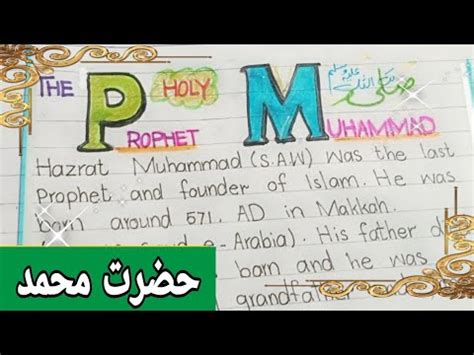 THE HOLY
PROPHET MUHAMMAD صلى الله عليه وسلم
Hazrat Muhammad (S.A.W) was the last
Prophet and founder of Islam. He was
born around 571. AD in Makkah.
e-Arabia). His father
born and he was
grandfather
حضرت محمد